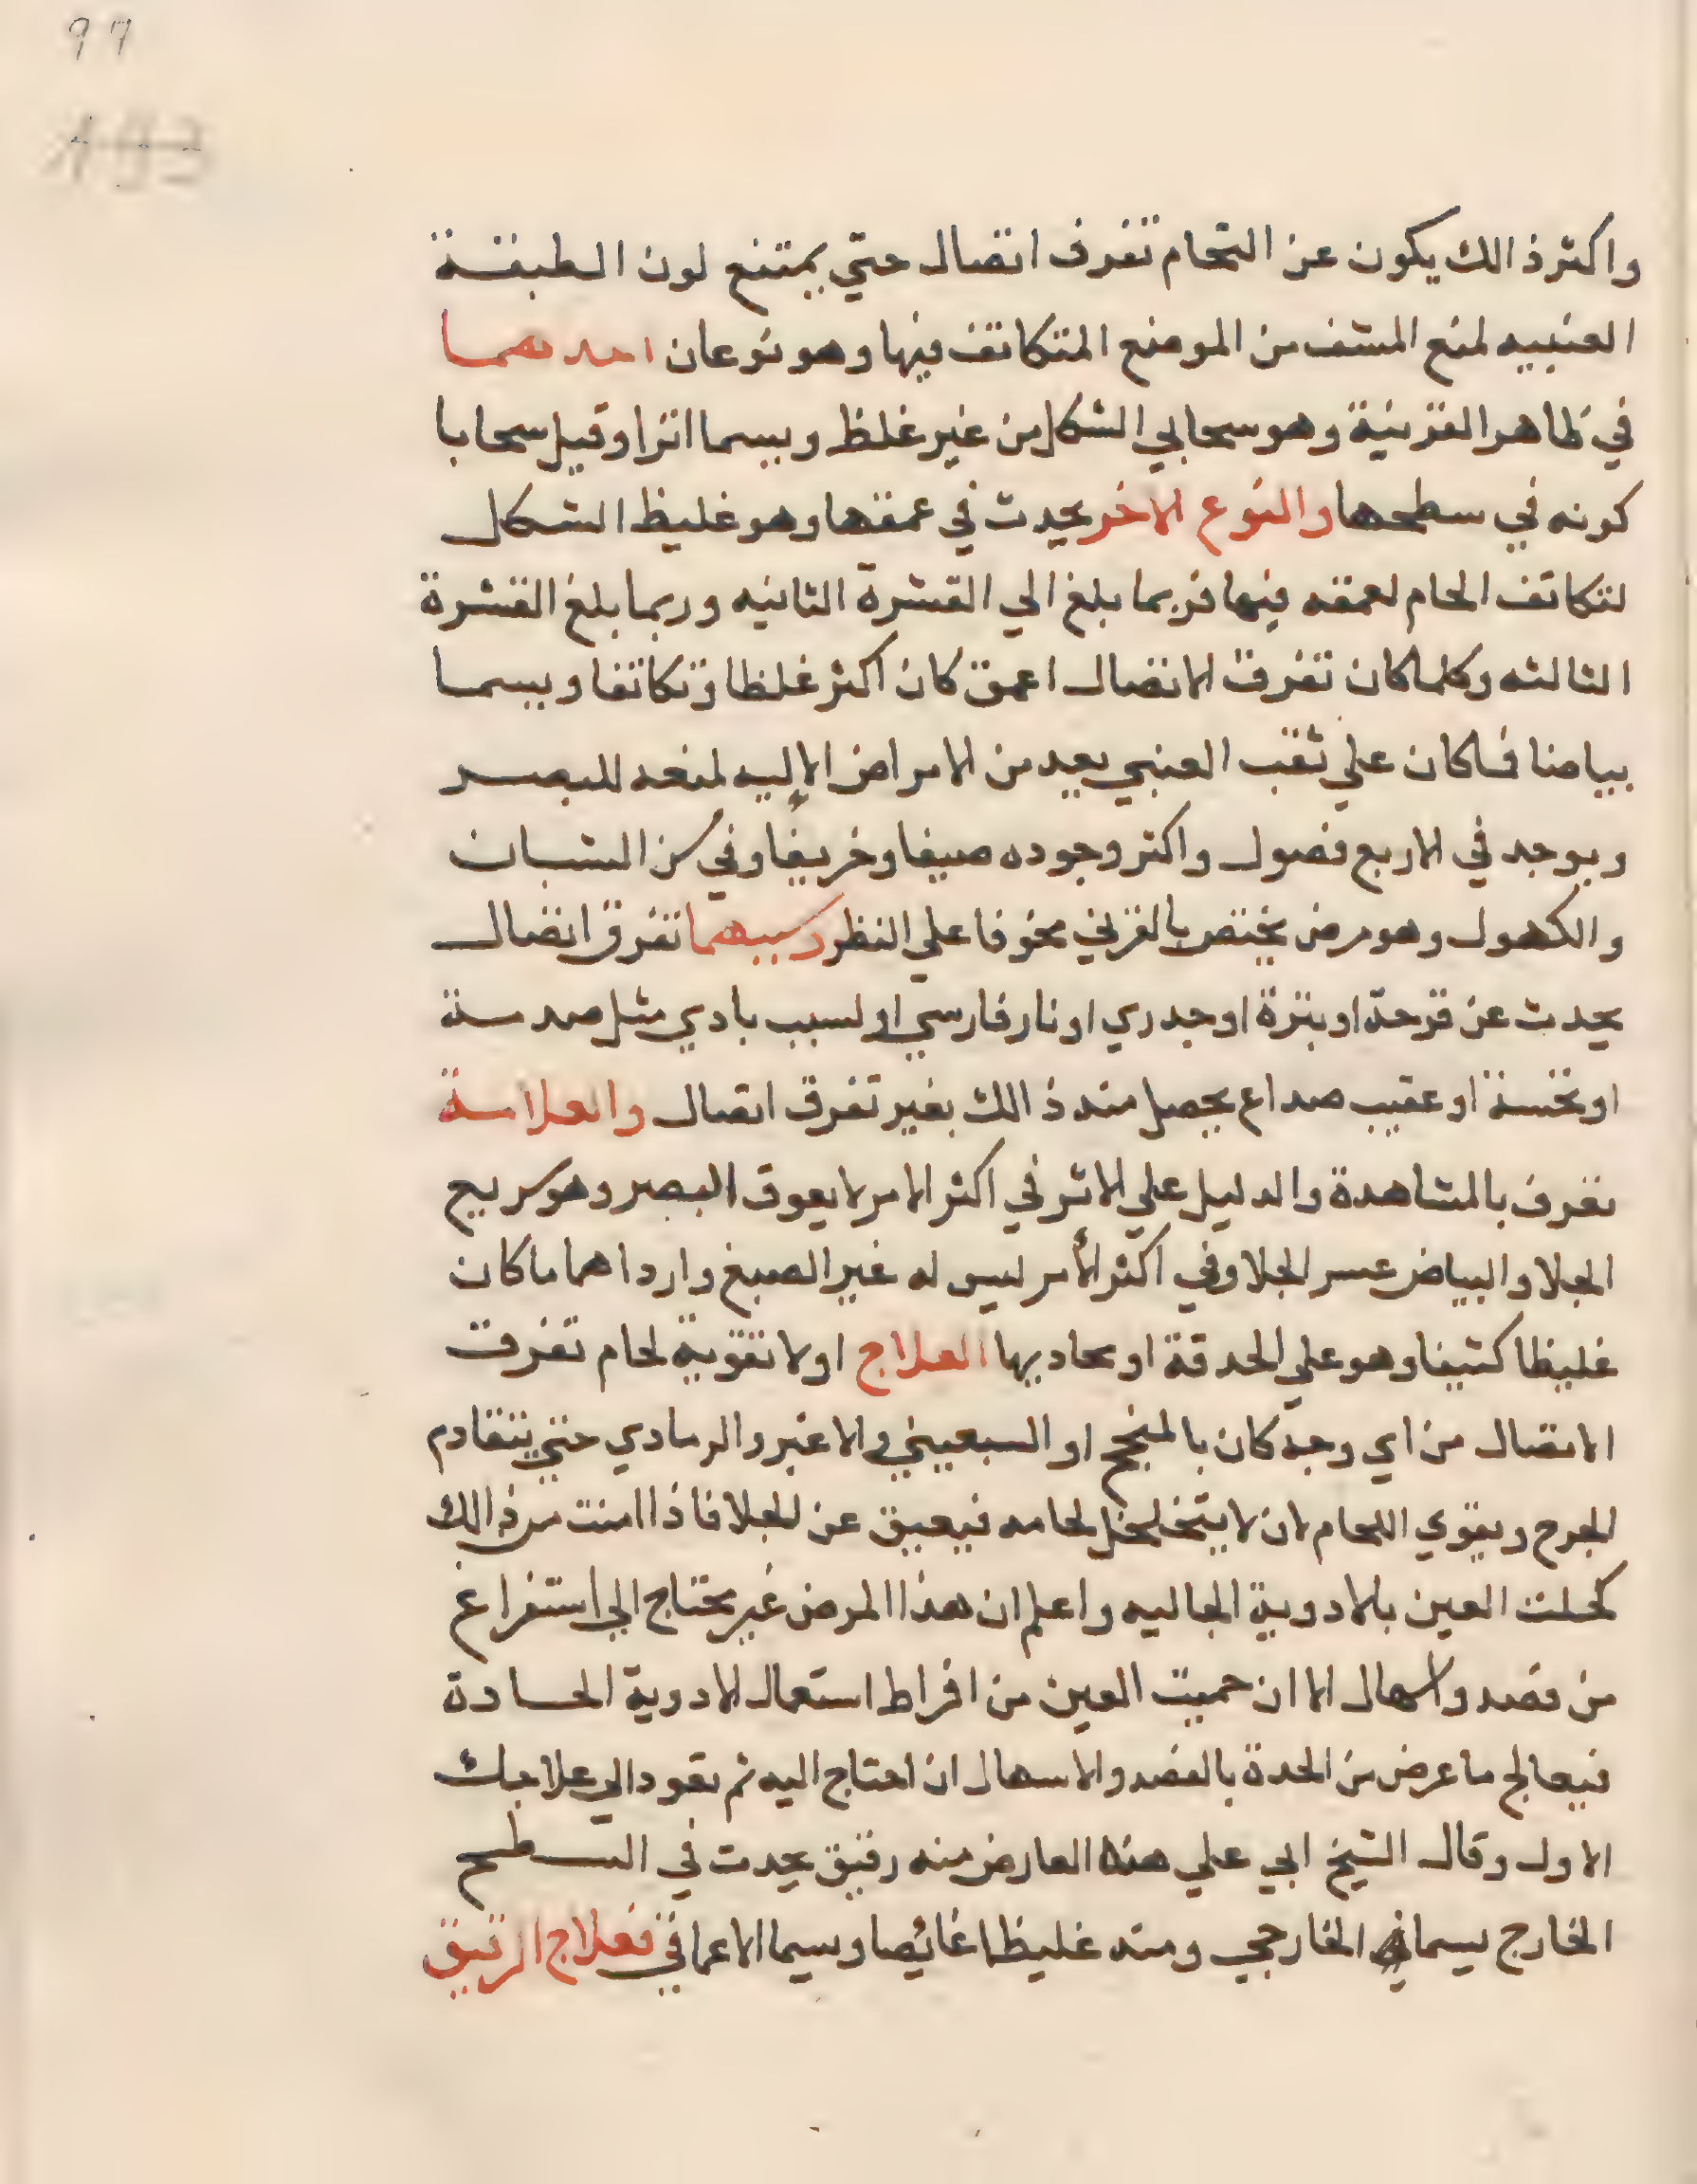 97
واكثر ذالك يكون عن التحام تفرق اتصال حتي يمتنع لون الطبقة
العنبيه لمنع المشف من الموضع المتكاثف فيها وهو نوعان احدهما
في ظاهر القرنية وهو سحابي الشكل من غير غلظ ويسما اثرا وقيل سحابا
كونه في سطحها والنوع الاخر يحدث في عمقها وهو غليظ الشكل
لتكاثف الحام لعمقه فيها فربما بلغ الي القشرة الثانيه وربما بلغ القشرة
الثالثه وكلما كان تفرق الاتصال اعمق كان اكثر غلظا وتكاثفا ويسما
بياضا فاكان علي ثقب العنبي يعد من الامراض الإليه لمنعه للبصر
ويوجد في الاربع فصول واكثر وجوده صيفا وخريفا وفي سن الشبان
والكهول وهو مرض يختص بالقرني مخوفا علي النظر وسببهما تفرق اتصال
يحدث عن قرحة او بثرة او جدري او نار فارسي او لسبب بادي مثل صدمسة
او نخسة او عقيب صداع يحصل منه ذالك بغير تفرق اتصال والعلامة
تعرف بالمشاهدة والدليل علي الاثر في اكثر الامر لا يعوق البصر وهو سريع
الجلا والبياض عسر الجلا وفي اكثر الأمر ليس له غير الصبغ واردا هما ماكان
غليظا كثيفا وهو علي الحدقة او يحاديها العلاج اولا تقوية لحام تفرق
الاتصال من اي وجه كان بالمنجح او السبعيني والاغبر والرمادي حتي يتقادم
الجرح ويقوي اللحام لان لا يتخلخل لحامه فيعيق عن الجلا فاذا امنت من ذالك
كحلت العين بلادوية الجاليه واعلم ان هذا المرض غير محتاج الي استفراغ
من فصد واسهال الا ان حميت العين من افراط استعمال الادوية الحادة
فيعالج ما عرض من الحدة بالفصد والاسهال ان احتاج اليه ثم تعود الي علاجك
الاول وقال الشيخ ابي علي هذا العارض منه رقيق يحدث في السطح
الخارج يسما الخارجي ومنه غليظا غائصا وسيما الاعماقي فعلاج الرقيق